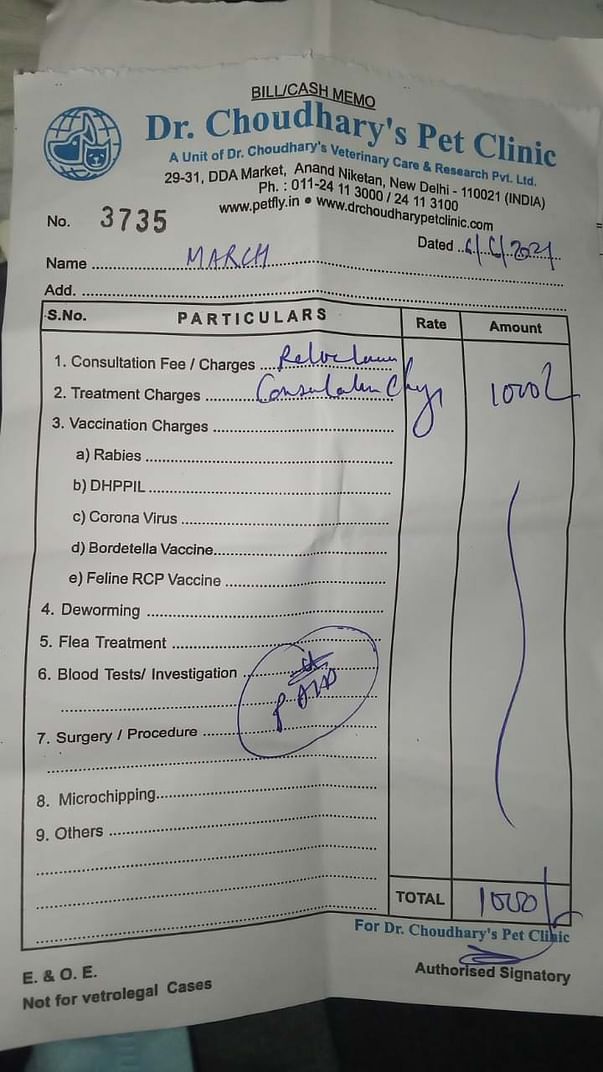 BILL/CASH MEMO
Dr. Choudhary's Pet Clinic
A Unit of Dr. Choudhary's Veterinary Care & Research Pvt. Ltd.
29-31, DDA Market, Anand Niketan, New Delhi - 110021 (INDIA)
Ph. : 011-24 11 3000 / 24 11 3100
www.petfly.in • www.drchoudharypetclinic.com
No. 3735
Dated ../2021
Name ... MARCH
Add. ...
S.No. PARTICULARS Rate Amount
1. Consultation Fee / Charges ...
2. Treatment Charges ... Consultation Chgs 1000/-
3. Vaccination Charges ...
a) Rabies ...
b) DHPPIL ...
c) Corona Virus ...
d) Bordetella Vaccine...
e) Feline RCP Vaccine ...
4. Deworming ...
5. Flea Treatment ...
6. Blood Tests/ Investigation ...
PAID
7. Surgery / Procedure ...
8. Microchipping...
9. Others ...
TOTAL 1000/-
For Dr. Choudhary's Pet Clinic
E. & O. E.
Authorised Signatory
Not for vetrolegal Cases